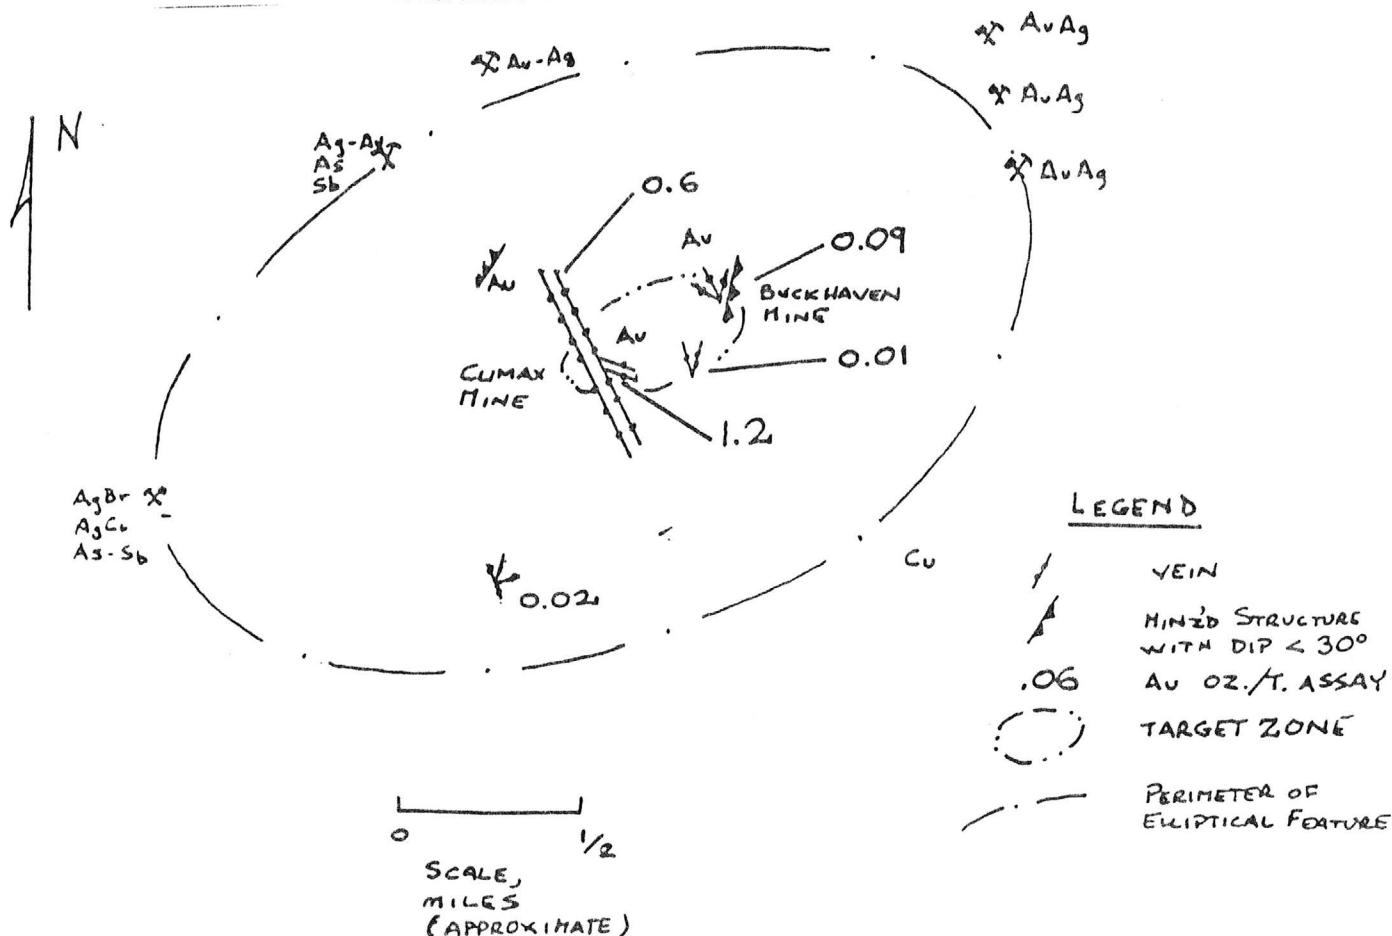 Au Ag
Au-Ag
Au Ag
N
Ag-Au
As
Sb
Au Ag
0.6
Au
0.09
Au
BUCKHAVEN
MINE
Au
0.01
CLIMAX
MINE
1.2
AgBr
AgCl
As-Sb
Cu
0.02
LEGEND
VEIN
MIN'Z'D STRUCTURE
WITH DIP < 30°
.06 Au OZ./T. ASSAY
TARGET ZONE
PERIMETER OF
ELLIPTICAL FEATURE
0 1/2
SCALE,
MILES
(APPROXIMATE)